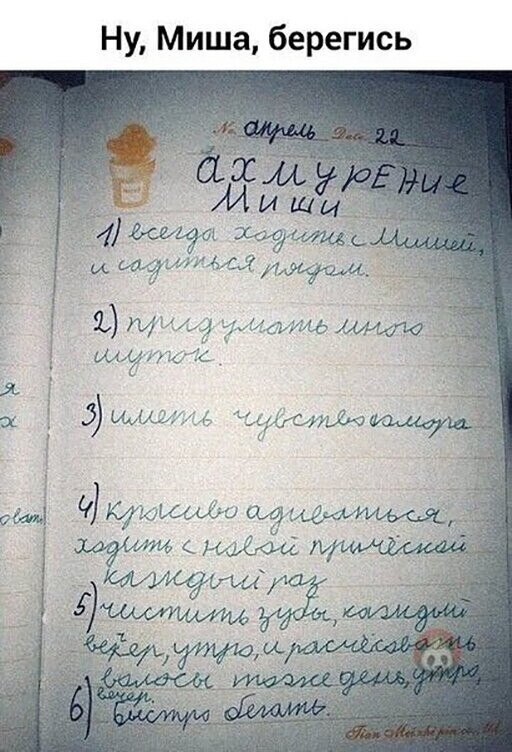 Ну, Миша, берегись
No. апрель Date 22
ахмурЕНие
Миши
1) всегда ходить с Мишей,
и садиться рядом.
2) придумать много
шуток.
3) иметь чувство юмора
4) красиво адиваться,
ходить с новой причёской
каждый раз
5) чистить зубы, каждый
вечер, утро, и расчёсовать
волосы тоже день, утро,
вечер.
6) Быстро бегать.
я
х
овать